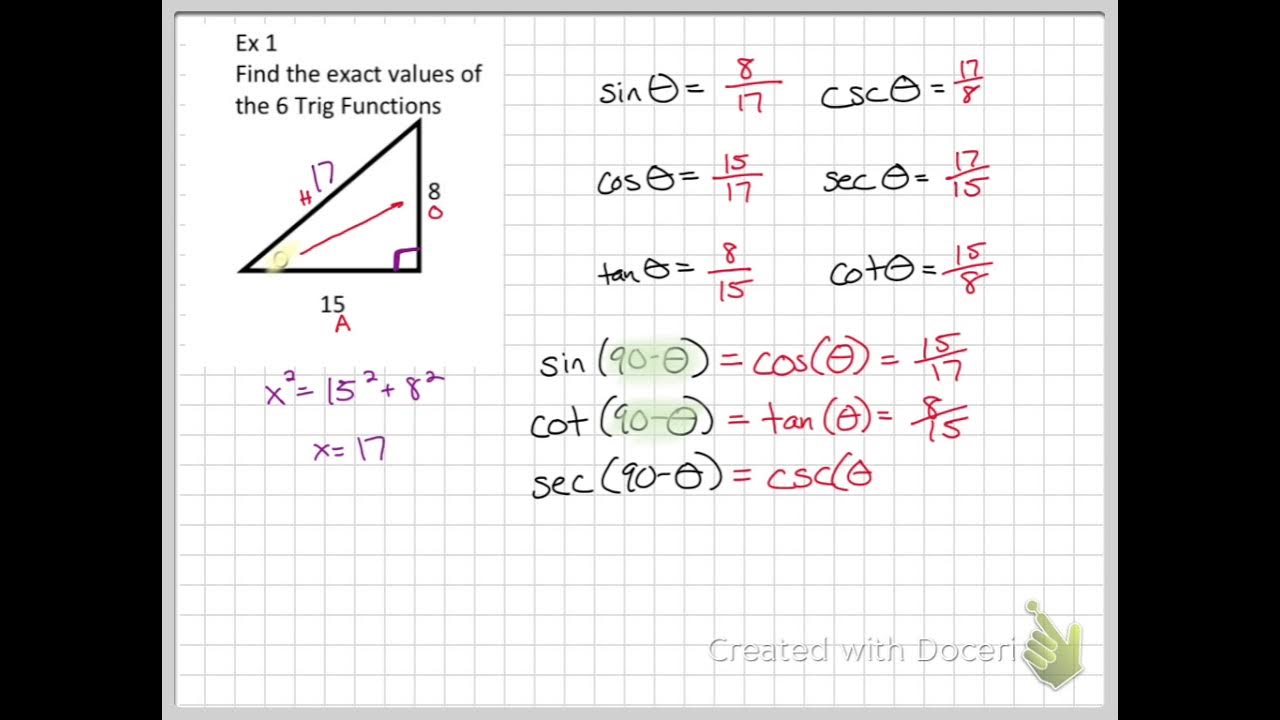 Ex 1
Find the exact values of
the 6 Trig Functions
17
H
8
O
θ
15
A
x² = 15² + 8²
x = 17
sin θ = 8/17
csc θ = 17/8
cos θ = 15/17
sec θ = 17/15
tan θ = 8/15
cot θ = 15/8
sin (90-θ) = cos(θ) = 15/17
cot (90-θ) = tan (θ) = 8/15
sec (90-θ) = csc(θ
Created with Doceri